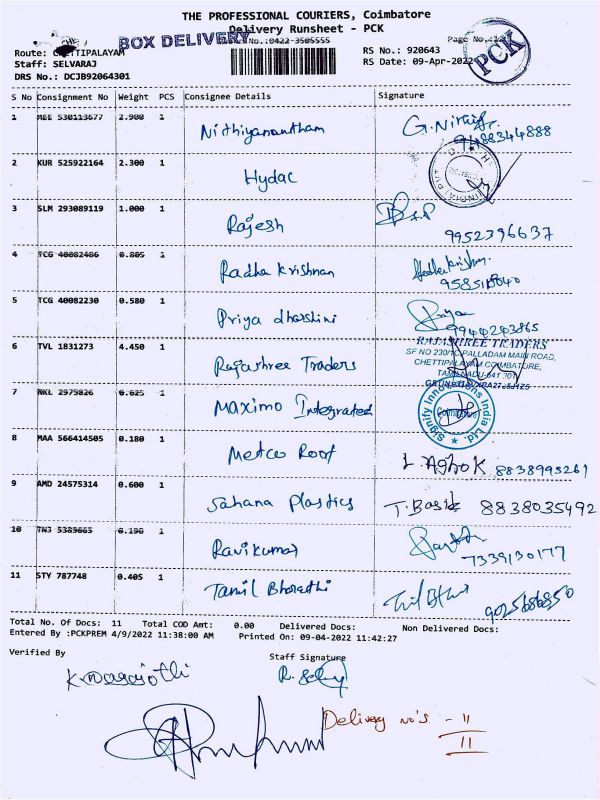 THE PROFESSIONAL COURIERS, Coimbatore
Delivery Runsheet - PCK
BOX DELIVERY
No.:0422-3505555
Page No.:1
PCK
Route: CHETTIPALAYAM
RS No.: 920643
Staff: SELVARAJ
RS Date: 09-Apr-2022
DRS No.: DCJB92064301
S No Consignment No Weight PCS Consignee Details Signature
1 MEE 530113677 2.900 1 Nithiyanantham G.Nithiy 9488344888
2 KUR 525922164 2.300 1 Hydac
3 SLM 293089119 1.000 1 Rajesh 9952396637
4 TCG 40082486 0.805 1 Radha Krishnan Radhakrishnan.
5 TCG 40082230 0.580 1 Priya dharshini Priya 9944243865
6 TVL 1831273 4.450 1 Rajashree Traders
RAJASHREE TRADERS
SF NO 230/1C PALLADAM MAIN ROAD,
CHETTIPALAYAM COIMBATORE,
TAMILNADU-641 201
7 RKL 2975826 0.625 1 Maximo Integrated
Signify Innovations India Ltd.
8 MAA 566414505 0.180 1 Metco Roof L. AShoK 8838995261
9 AMD 24575314 0.600 1 Sahana Plastics T. Basik 8838035492
10 TNJ 5389665 0.190 1 Ravikumar 7339130177
11 STY 787748 0.405 1 Tamil Bharathi 9025686850
Total No. Of Docs: 11 Total COD Amt: 0.00 Delivered Docs: Non Delivered Docs:
Entered By :PCKPREM 4/9/2022 11:38:00 AM Printed On: 09-04-2022 11:42:27
Verified By Staff Signature
Delivery no's - 11
11